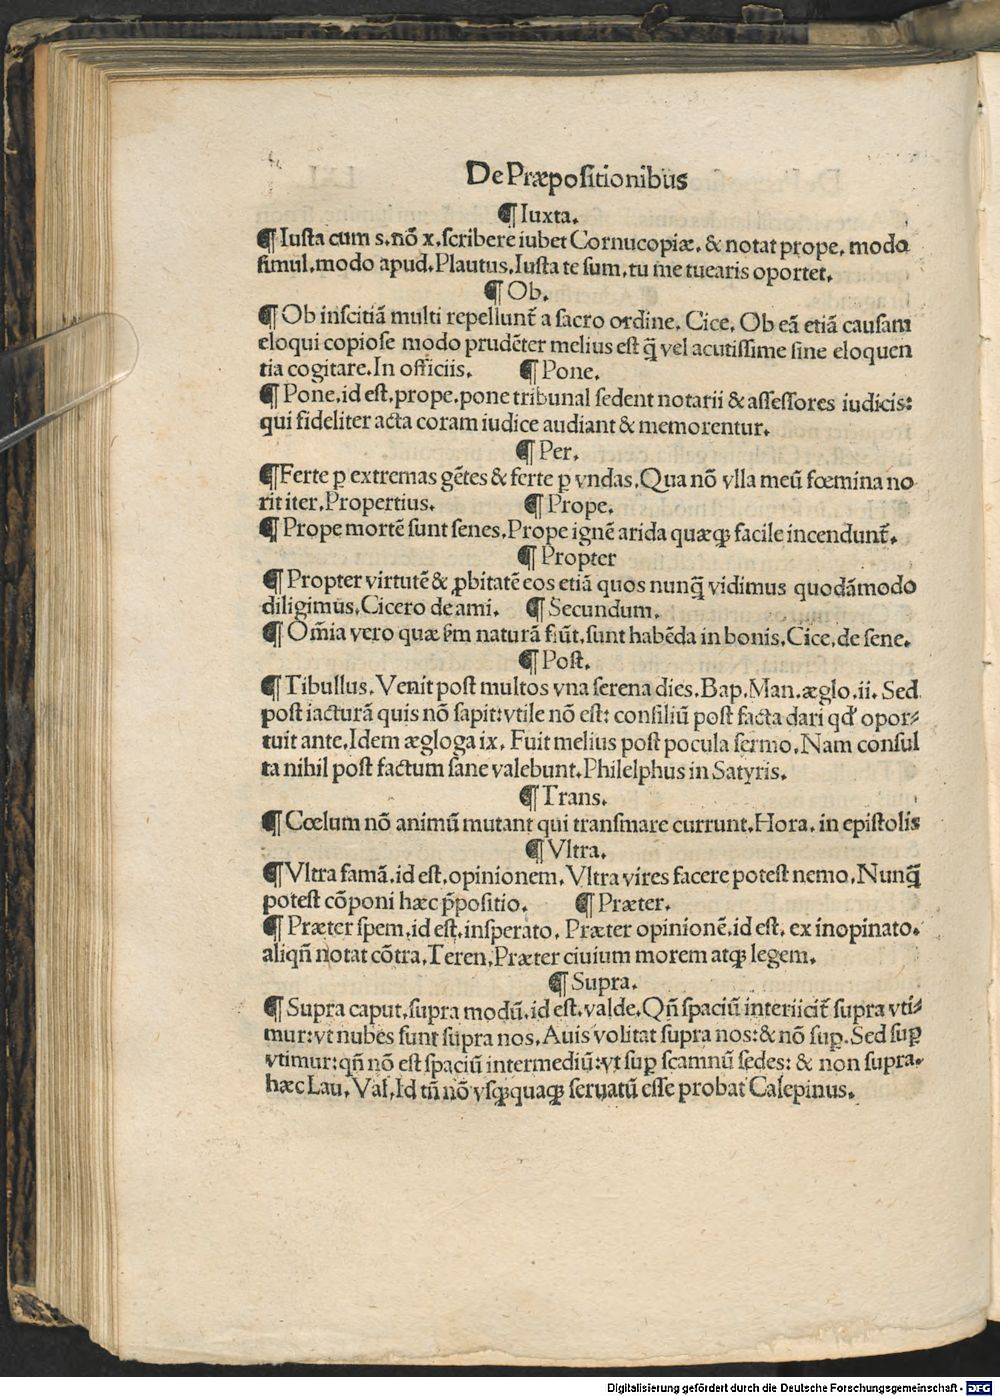 De Præpositionibus
¶ Iuxta.
¶ Iusta cum s. nõ x. scribere iubet Cornucopiæ. & notat prope. modo
simul. modo apud. Plautus. Iusta te sum. tu me tuearis oportet.
¶ Ob.
¶ Ob inscitiã multi repellunt̃ a sacro ordine. Cice. Ob eã etiã causam
eloqui copiose modo prudẽter melius est q̃ vel acutissime sine eloquen
tia cogitare. In officiis. ¶ Pone.
¶ Pone. id est. prope. pone tribunal sedent notarii & assessores iudicis:
qui fideliter acta coram iudice audiant & memorentur.
¶ Per.
¶ Ferte ꝑ extremas gẽtes & ferte ꝑ vndas. Qua nõ vlla meũ fœmina no
rit iter. Propertius. ¶ Prope.
¶ Prope mortẽ sunt senes. Prope ignẽ arida quæqꝫ facile incendunt̃.
¶ Propter
¶ Propter virtutẽ & ꝓbitatẽ eos etiã quos nunq̃ vidimus quodãmodo
diligimus. Cicero de ami. ¶ Secundum.
¶ Om̃ia vero quæ ẜm naturã fiũt. sunt habẽda in bonis. Cice. de sene.
¶ Post.
¶ Tibullus. Venit post multos vna serena dies. Bap. Man. æglo. ii. Sed
post iacturã quis nõ sapit: vtile nõ est: consiliũ post facta dari qđ opor⸗
tuit ante. Idem ægloga ix. Fuit melius post pocula sermo. Nam consul
ta nihil post factum sane valebunt. Philelphus in Satyris.
¶ Trans.
¶ Cœlum nõ animũ mutant qui transmare currunt. Hora. in epistolis
¶ Vltra.
¶ Vltra famã. id est. opinionem. Vltra vires facere potest nemo. Nunq̃
potest cõponi hæc p̃positio. ¶ Præter.
¶ Præter spem. id est. insperato. Præter opinionẽ. id est. ex inopinato.
aliqñ notat cõtra. Teren. Præter ciuium morem atqꝫ legem.
¶ Supra.
¶ Supra caput. supra modũ. id est. valde. Qñ spaciũ interiicit̃ supra vti⸗
mur: vt nubes sunt supra nos. Auis volitat supra nos: & nõ suꝑ. Sed suꝑ
vtimur: qñ nõ est spaciũ intermediũ: vt suꝑ scamnũ sedes: & non supra.
hæc Lau. Val. Id tñ nõ vsqꝫquaqꝫ seruatũ esse probat Calepinus.
Digitalisierung gefördert durch die Deutsche Forschungsgemeinschaft - DFG